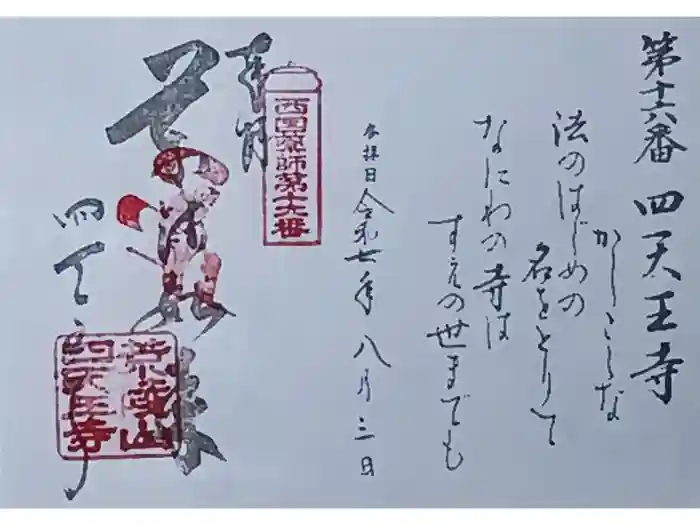 第十六番 四天王寺
かしこくな
法のはじめの
名をとりて
なにわの寺は
すえの世までも
参拝日 令和七年八月三日
奉拝
西国薬師第十六番
四天王寺
荒陵山
四天王寺